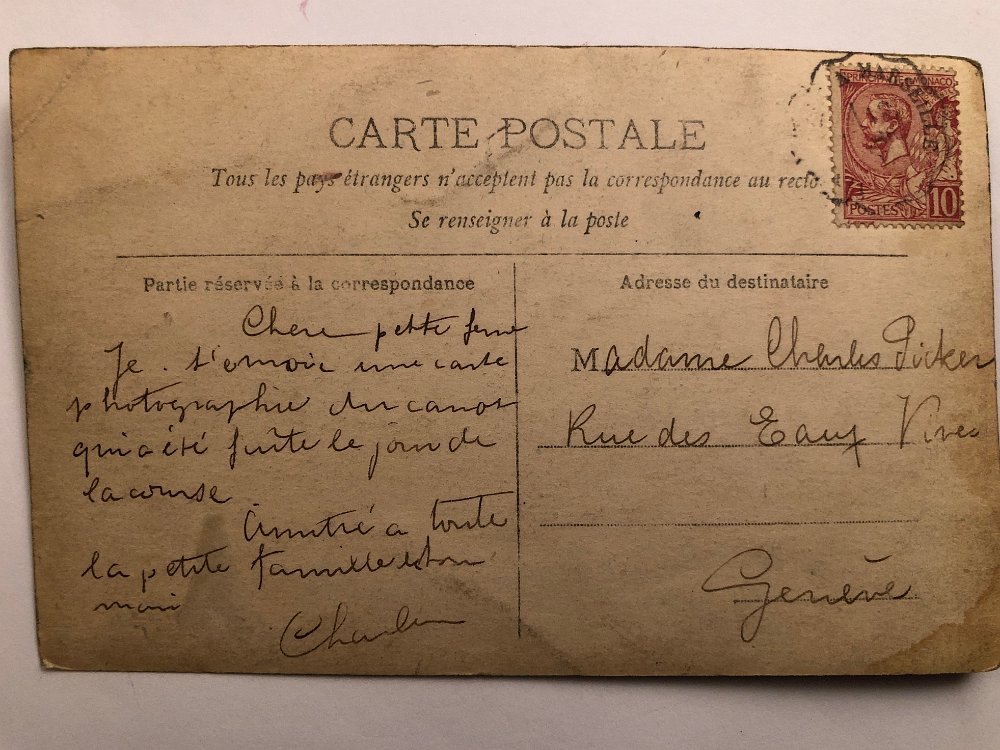 CARTE POSTALE
Tous les pays étrangers n'acceptent pas la correspondance au recto
Se renseigner à la poste
MARSEILLE
PRINCIPAUTÉ DE MONACO
POSTES
10
Partie réservée à la correspondance
Chere petite feme
Je t'envoie une carte
photographie du canot
qui a été faite le jour de
la course
Amitié a toute
la petite famille et ton
mari
Charles
Adresse du destinataire
Madame Charles Picker
Rue des Eaux Vives
Genève